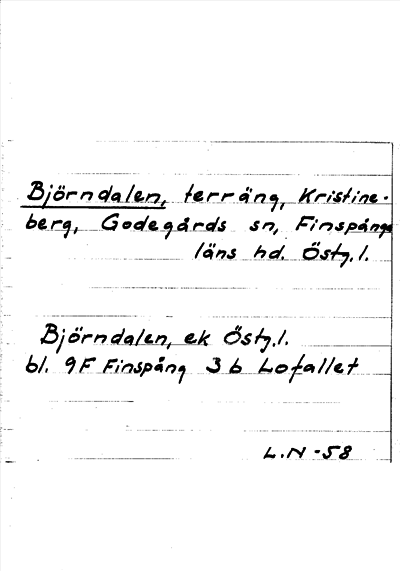 Björndalen, terräng, Kristine-
berg, Godegårds sn, Finspånga
läns hd. Östg.l.
Björndalen, ek Östg.l.
bl. 9F Finspång 3 b Lofallet
L.N -58